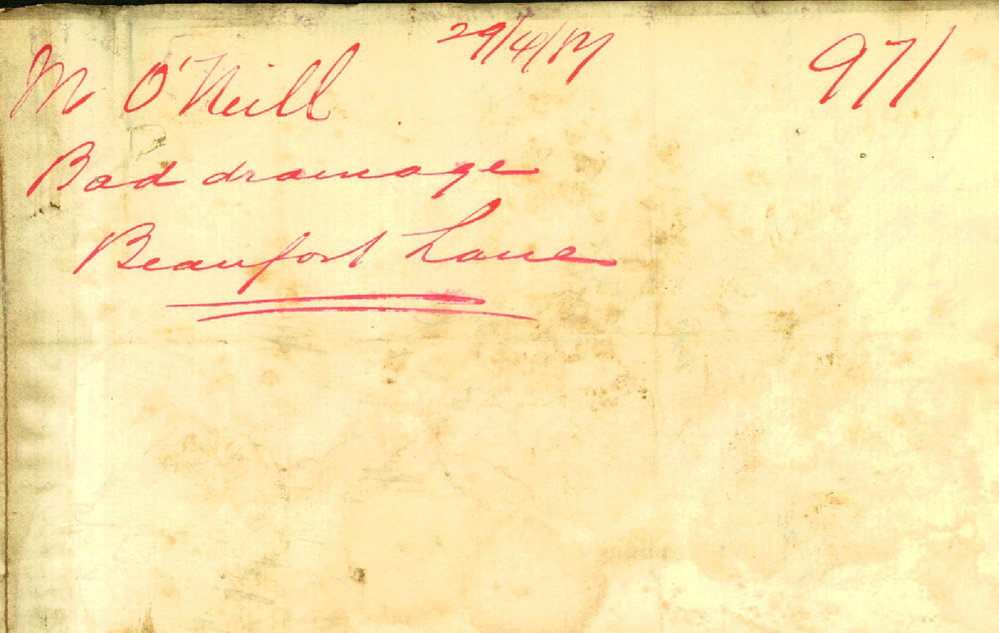 29/4/17
M O'Neill 971
Bad drainage
Beaufort Lane